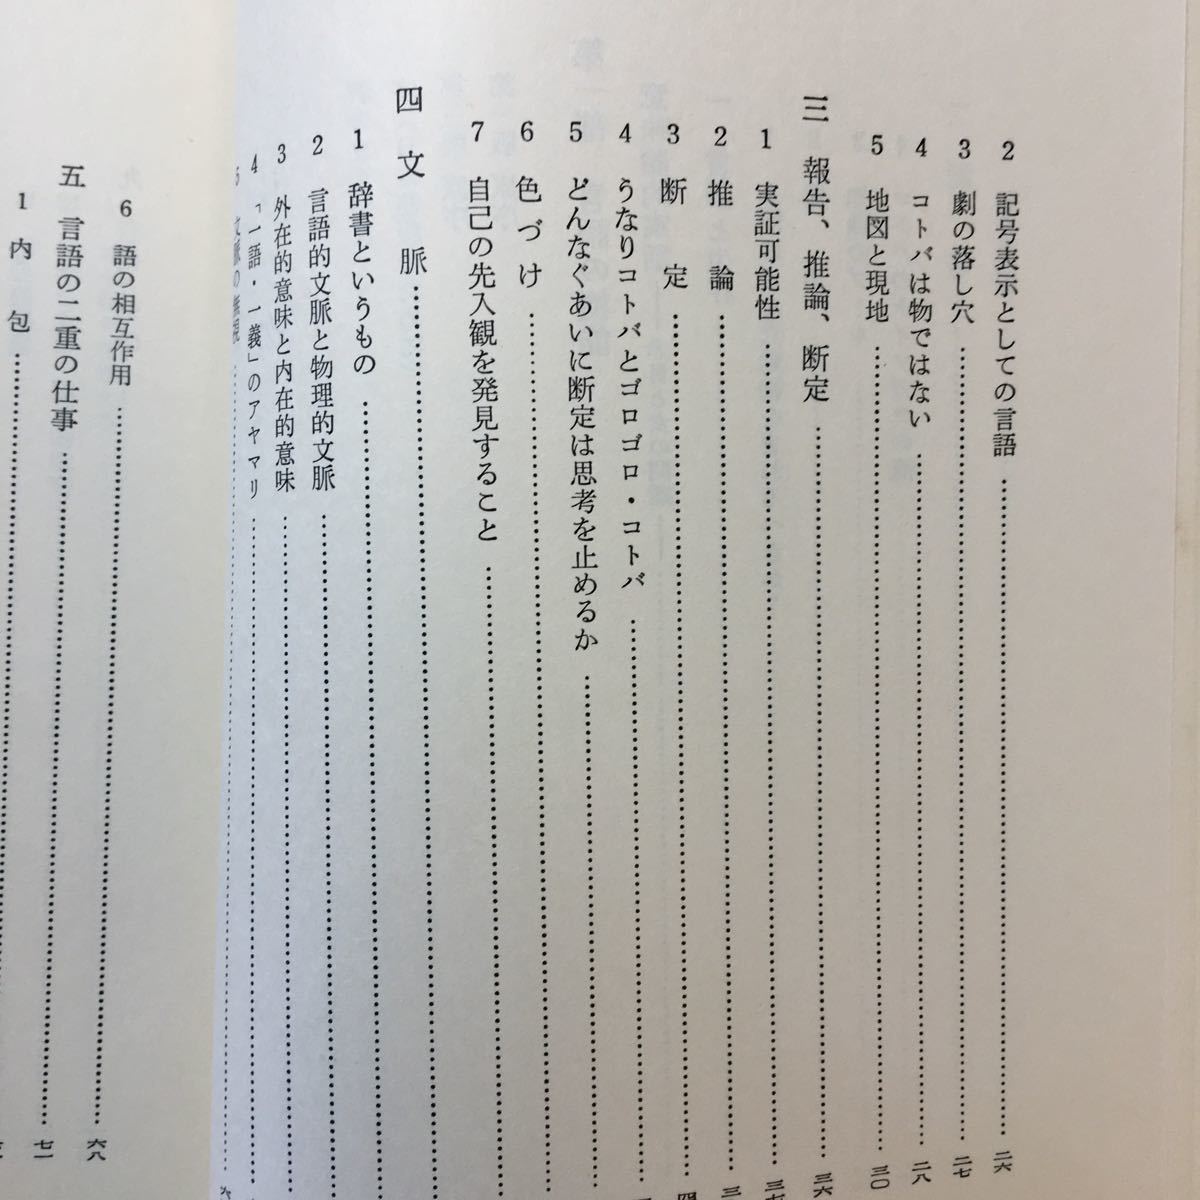 2 記号表示としての言語……二六
3 劇の落し穴……二七
4 コトバは物ではない……二八
5 地図と現地……三〇
三 報告、推論、断定……三六
1 実証可能性……三七
2 推論……
3 断定……
4 うなりコトバとゴロゴロ・コトバ……
5 どんなぐあいに断定は思考を止めるか……
6 色づけ……
7 自己の先入観を発見すること……
四 文脈……
1 辞書というもの……
2 言語的文脈と物理的文脈……
3 外在的意味と内在的意味……
4 「一語・一義」のアヤマリ……
5 文脈の無視……
6 語の相互作用……六八
五 言語の二重の仕事……七一
1 内包……